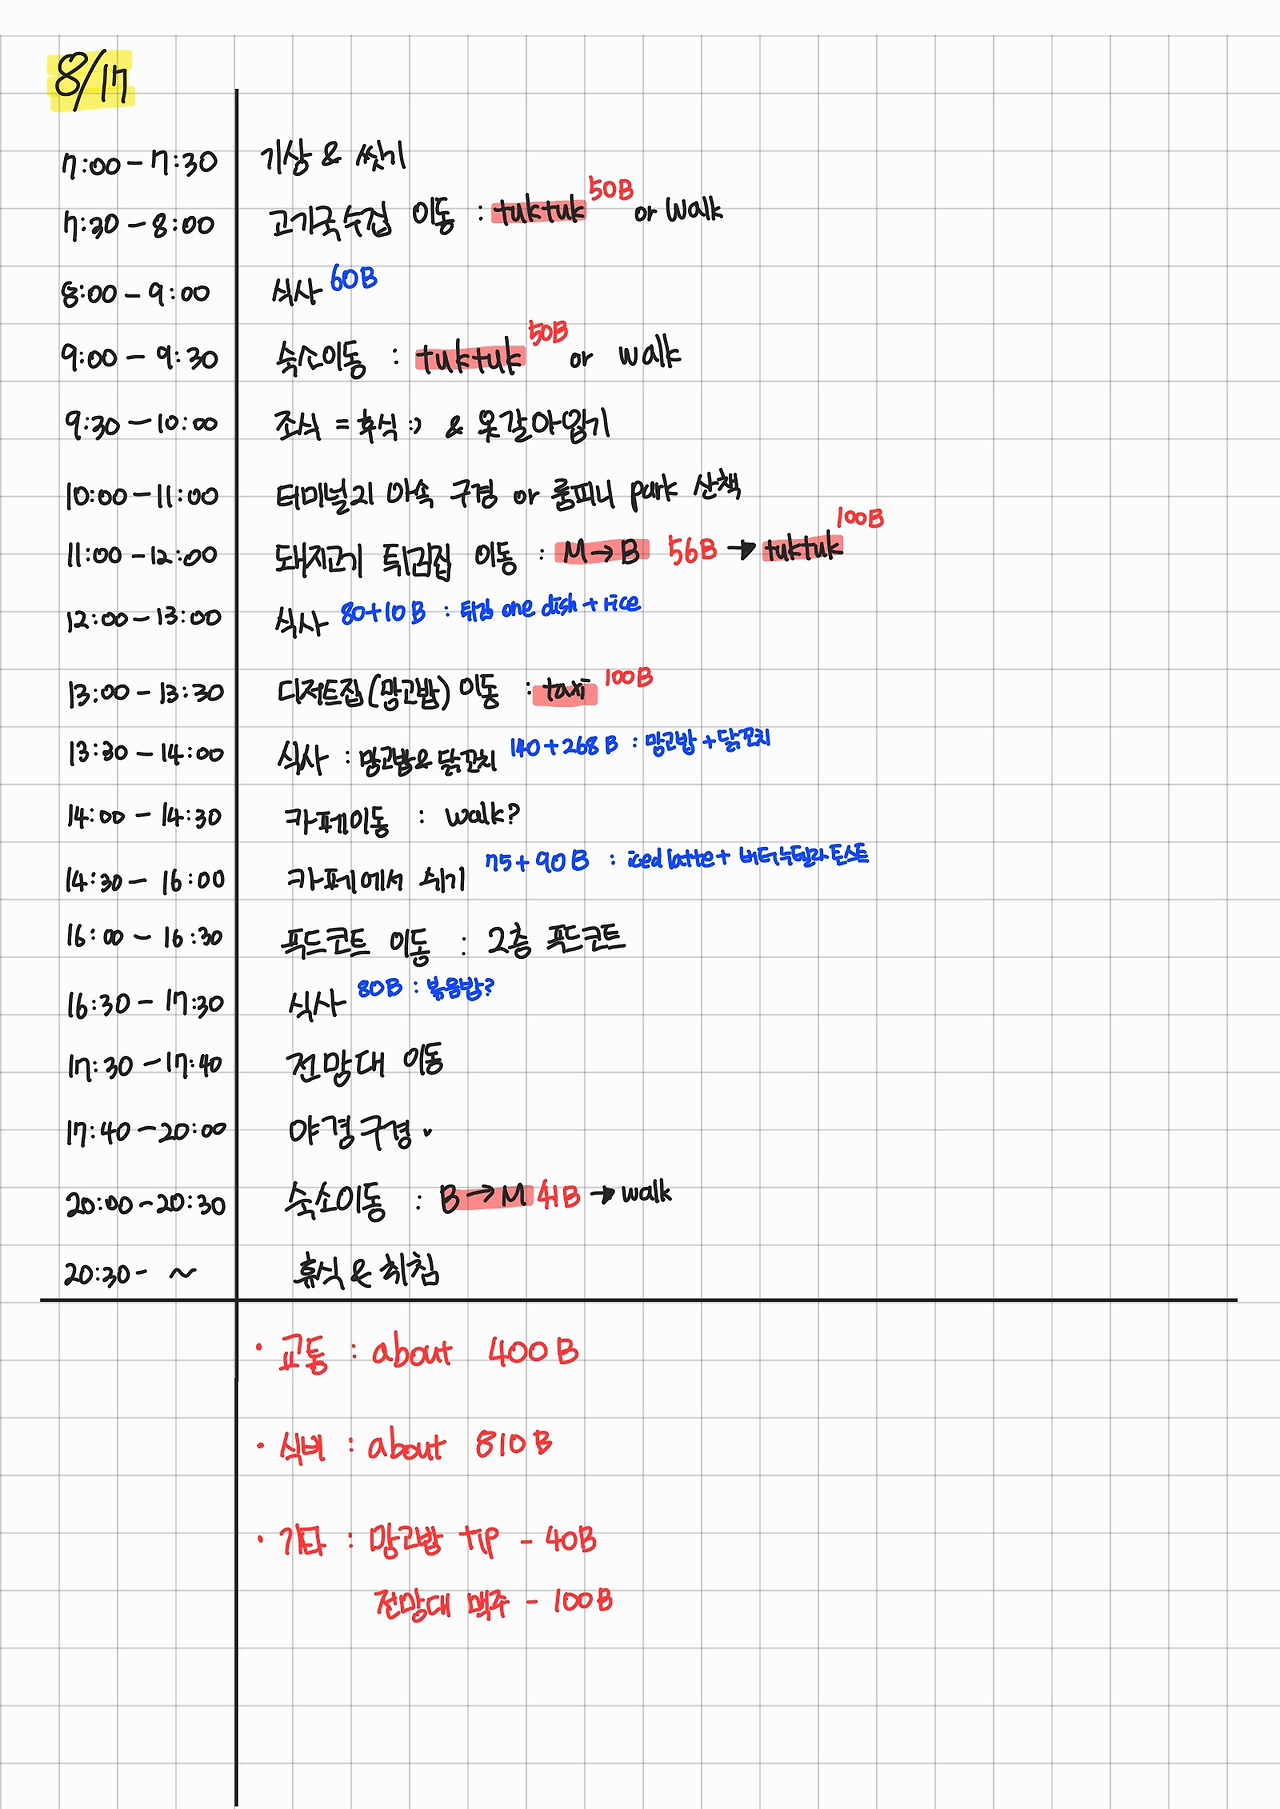 8/17
7:00 - 7:30 기상 & 씻기
7:30 - 8:00 고기국수집 이동 : tuktuk 50B or walk
8:00 - 9:00 식사 60B
9:00 - 9:30 숙소이동 : tuktuk 50B or walk
9:30 - 10:00 조식 = 휴식 :) & 옷갈아입기
10:00 - 11:00 터미널21 아속 구경 or 룸피니 park 산책
11:00 - 12:00 돼지고기 튀김집 이동 : M → B 56B → tuktuk 100B
12:00 - 13:00 식사 80+10B : 튀김 one dish + rice
13:00 - 13:30 디저트집(망고밥) 이동 : taxi 100B
13:30 - 14:00 식사 : 망고밥 & 닭꼬치 140+268B : 망고밥 + 닭꼬치
14:00 - 14:30 카페이동 : walk?
14:30 - 16:00 카페에서 쉬기 75+90B : iced latte + 버터누텔라토스트
16:00 - 16:30 푸드코트 이동 : 2층 푸드코트
16:30 - 17:30 식사 80B : 볶음밥?
17:30 - 17:40 전망대 이동
17:40 - 20:00 야경구경.
20:00 - 20:30 숙소이동 : B → M 41B → walk
20:30 - ~ 휴식 & 취침
· 교통 : about 400B
· 식비 : about 810B
· 기타 : 망고밥 tip - 40B
전망대 맥주 - 100B